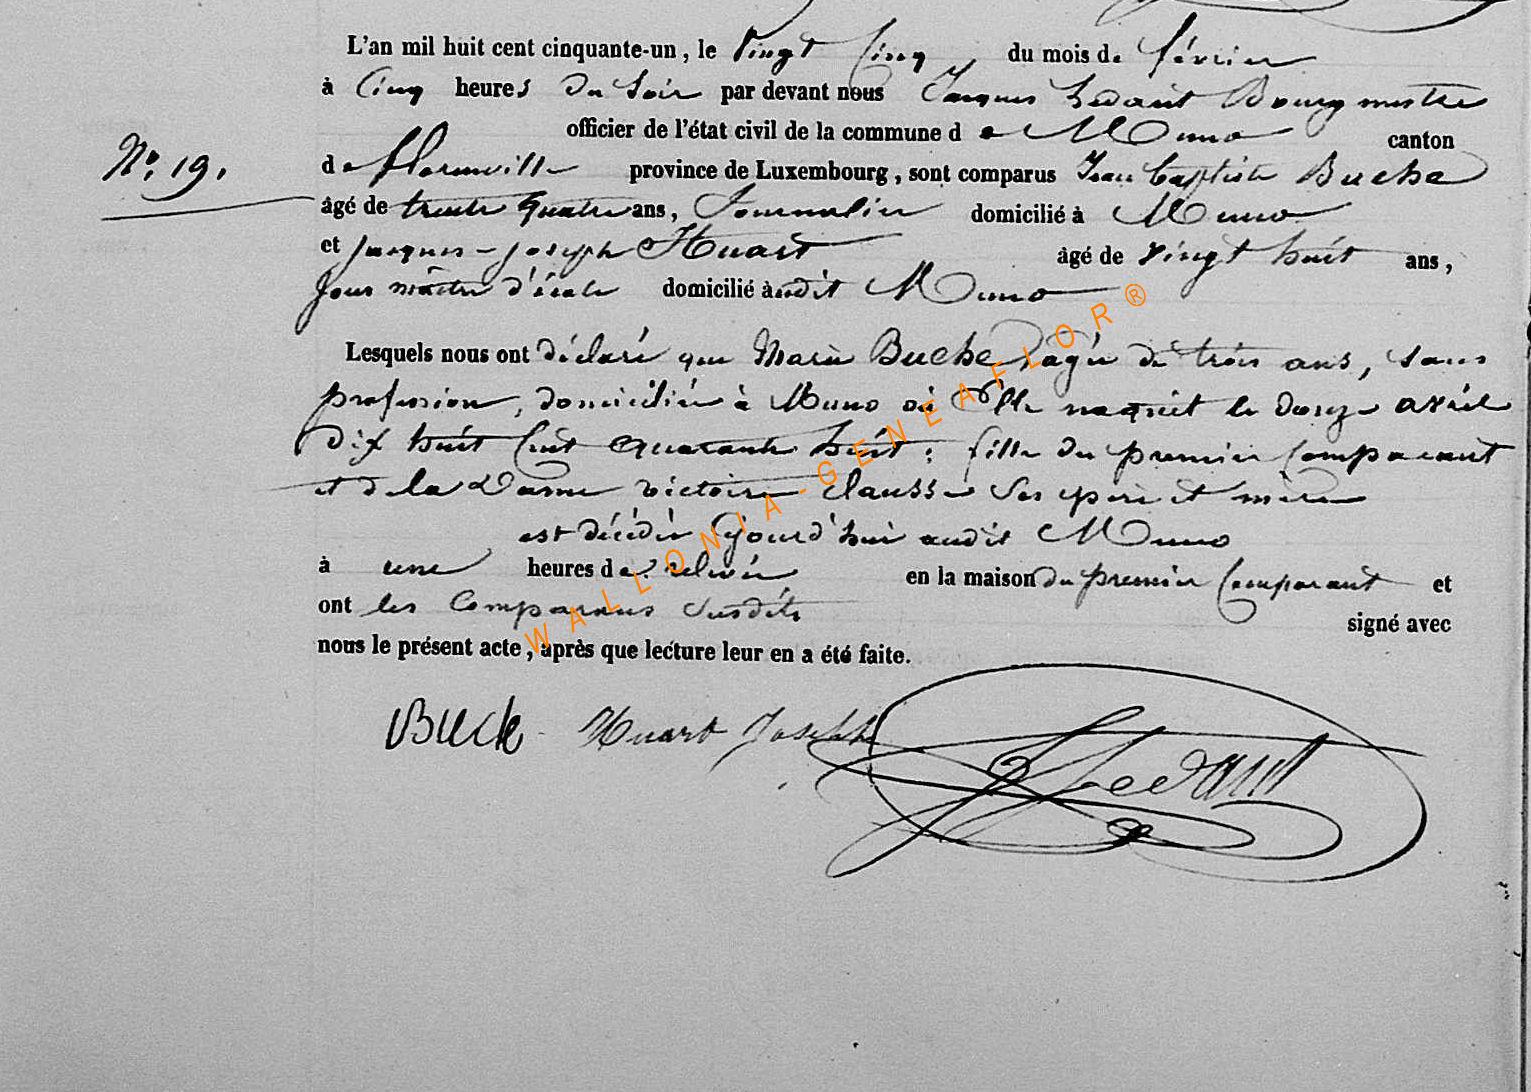 L'an mil huit cent cinquante-un, le Vingt Cinq du mois de février
à Cinq heures Du Soir par devant nous Jacques hedant Bourgmestre
officier de l'état civil de la commune de Muno canton
No. 19. de florenville province de Luxembourg, sont comparus Jean Baptiste Buche
âgé de trente quatre ans, Journalier domicilié à Muno
et Jacques-Joseph Huart âgé de Vingt huit ans,
Sous maître d'école domicilié audit Muno
Lesquels nous ont déclaré que Marie Buche, agée de trois ans, sans
profession, domiciliée à Muno où Elle naquit le douze avril
Dix huit Cent quarante huit; fille du premier Comparant
et de la Dame Victoire Clausse Ses père et mère
est décédée Ajourd'hui audit Muno
à une heures de relevée en la maison du premier Comparant et
ont les Comparans Susdits signé avec
nous le présent acte, après que lecture leur en a été faite.
Buck Huart Joseph Hedant
WALLONIA-GENEAFLOR®